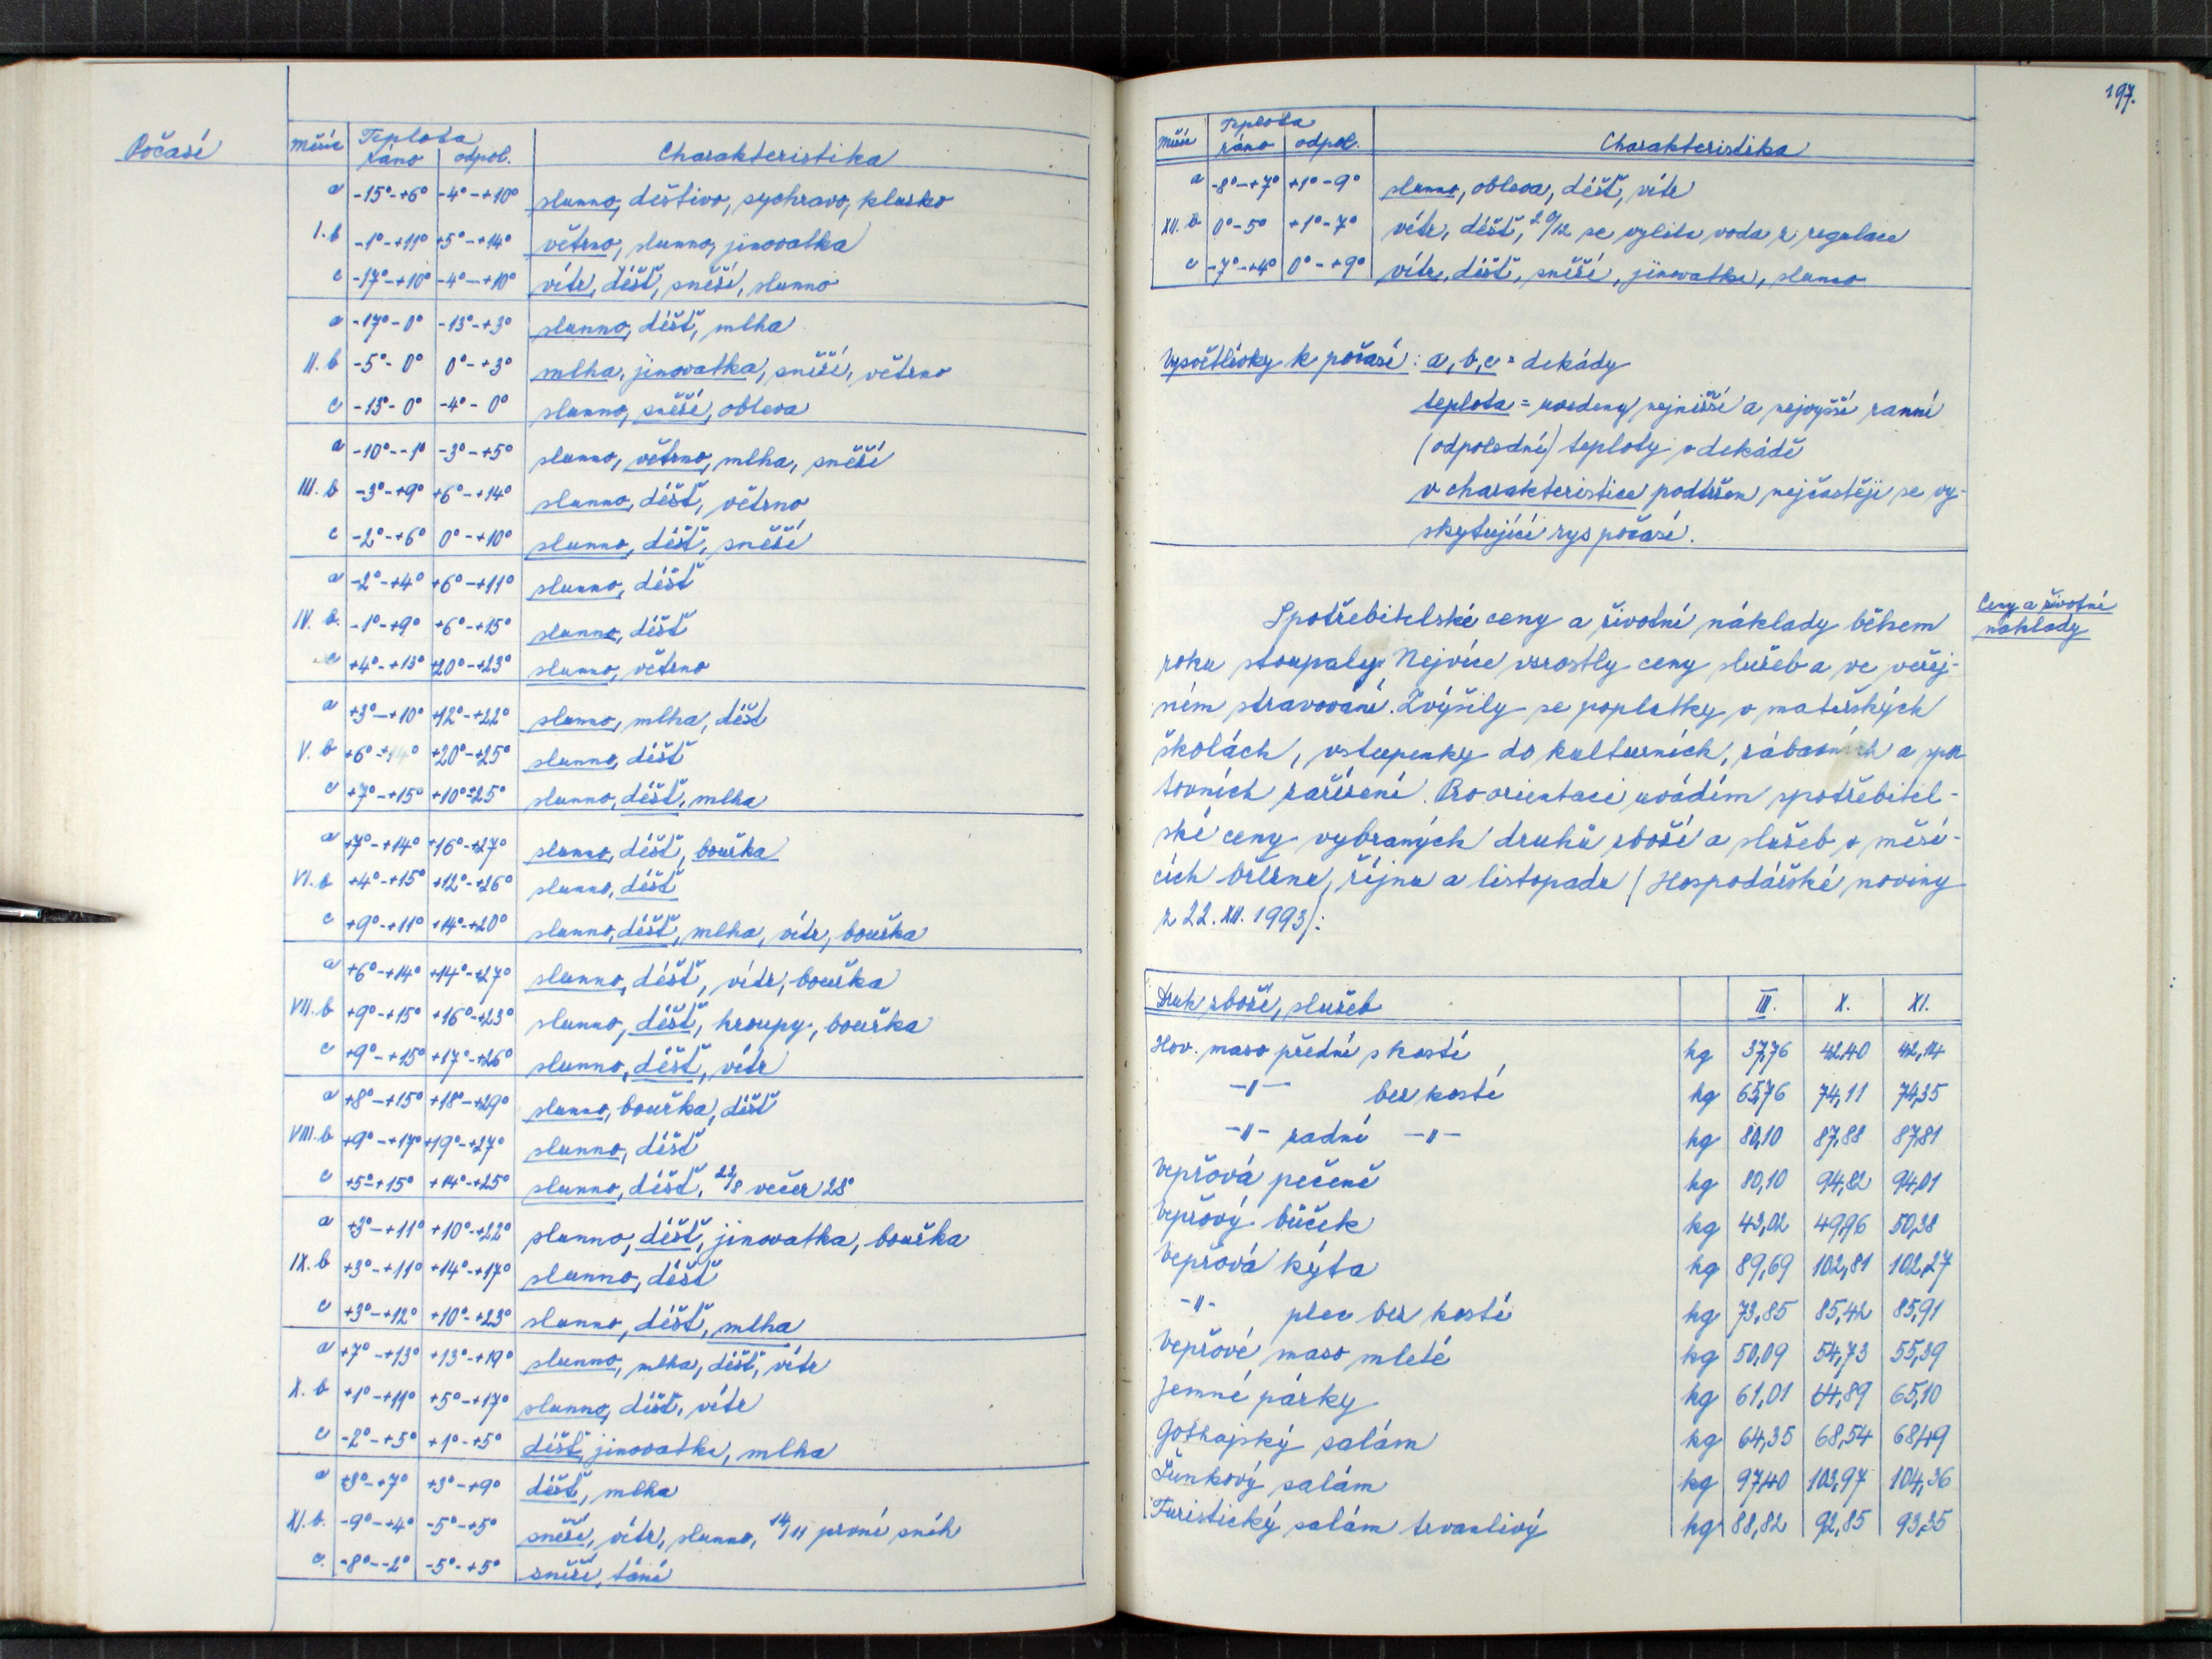 Počasí
měsíc Teplota Charakteristika
ráno odpol.
a -15°-+6° -4°-+10° slunno, deštivo, sychravo, kluzko
I. b -1°-+11° +5°-+14° větrno, slunno, jinovatka
c -17°-+10° -4°-+10° vítr, déšť, sněží, slunno
a -17°-0° -13°-+3° slunno, déšť, mlha
II. b -5°-0° 0°-+3° mlha, jinovatka, sněží, větrno
c -13°-0° -4°-0° slunno, sněží, obleva
a -10°--1° -3°-+5° slunno, větrno, mlha, sněží
III. b -3°-+9° +6°-+14° slunno, déšť, větrno
c -2°-+6° 0°-+10° slunno, déšť, sněží
a -2°-+4° +6°-+11° slunno, déšť
IV. b. -1°-+9° +6°-+15° slunno, déšť
c +4°-+13° +20°-+23° slunno, větrno
a +3°-+10° +12°-+22° slunno, mlha, déšť
V. b +6°-+14° +20°-+25° slunno, déšť
c +7°-+15° +10°-+25° slunno, déšť, mlha
a +7°-+14° +16°-+27° slunno, déšť, bouřka
VI. b +4°-+15° +12°-+26° slunno, déšť
c +9°-+11° +14°-+20° slunno, déšť, mlha, vítr, bouřka
a +6°-+14° +14°-+27° slunno, déšť, vítr, bouřka
VII. b +9°-+15° +16°-+23° slunno, déšť, kroupy, bouřka
c +9°-+15° +17°-+26° slunno, déšť, vítr
a +8°-+15° +18°-+29° slunno, bouřka, déšť
VIII. b +9°-+17° +19°-+27° slunno, déšť
c +5°-+15° +14°-+25° slunno, déšť, 22/8 večer 28°
a +3°-+11° +10°-+22° slunno, déšť, jinovatka, bouřka
IX. b +3°-+11° +14°-+17° slunno, déšť
c +3°-+12° +10°-+23° slunno, déšť, mlha
a +7°-+13° +13°-+19° slunno, mlha, déšť, vítr
X. b +1°-+11° +5°-+17° slunno, déšť, vítr
c -2°-+5° +1°-+5° déšť, jinovatka, mlha
a +3°-+7° +3°-+9° déšť, mlha
XI. b. -9°-+4° -5°-+5° sněží, vítr, slunno, 14/11 první sníh
c. -8°--2° -5°-+5° sněží, tání
197.
měsíc Teplota Charakteristika
ráno odpol.
a -8°-+7° +1°-9° slunno, obleva, déšť, vítr
XII. b 0°-5° +1°-7° vítr, déšť, 20/12 se vylila voda z regulace
c -7°-+4° 0°-+9° vítr, déšť, sněží, jinovatka, slunno
Vysvětlivky k počasí: a, b, c = dekády
teplota = uvedeny nejnižší a nejvyšší ranní
(odpolední) teploty v dekádě
v charakteristice podtržen nejčastěji se vy-
skytující rys počasí.
Ceny a životní
náklady
Spotřebitelské ceny a životní náklady během
roku stoupaly. Nejvíce vzrostly ceny služeb a ve veřej-
ném stravování. Zvýšily se poplatky v mateřských
školách, vstupenky do kulturních, zábavních a spor
tovních zařízení. Pro orientaci uvádím spotřebitel-
ské ceny vybraných druhů zboží a služeb v měsí-
cích březnu, říjnu a listopadu (Hospodářské noviny
z 22. XII. 1993):
Druh zboží, služeb III. X. XI.
Hov. maso přední s kostí kg 37,76 42,40 42,14
-"- bez kosti kg 65,76 74,11 74,35
-"- zadní -"- kg 80,10 87,88 87,81
Vepřová pečeně kg 80,10 94,82 94,01
Vepřový bůček kg 43,02 49,96 50,38
Vepřová kýta kg 89,69 102,81 102,27
-"- plec bez kosti kg 73,85 85,42 85,91
Vepřové maso mleté kg 50,09 54,73 55,39
Jemné párky kg 61,01 64,89 65,10
Gothajský salám kg 64,35 68,54 68,49
Šunkový salám kg 97,40 103,97 104,36
Turistický salám trvanlivý kg 88,82 92,85 93,35